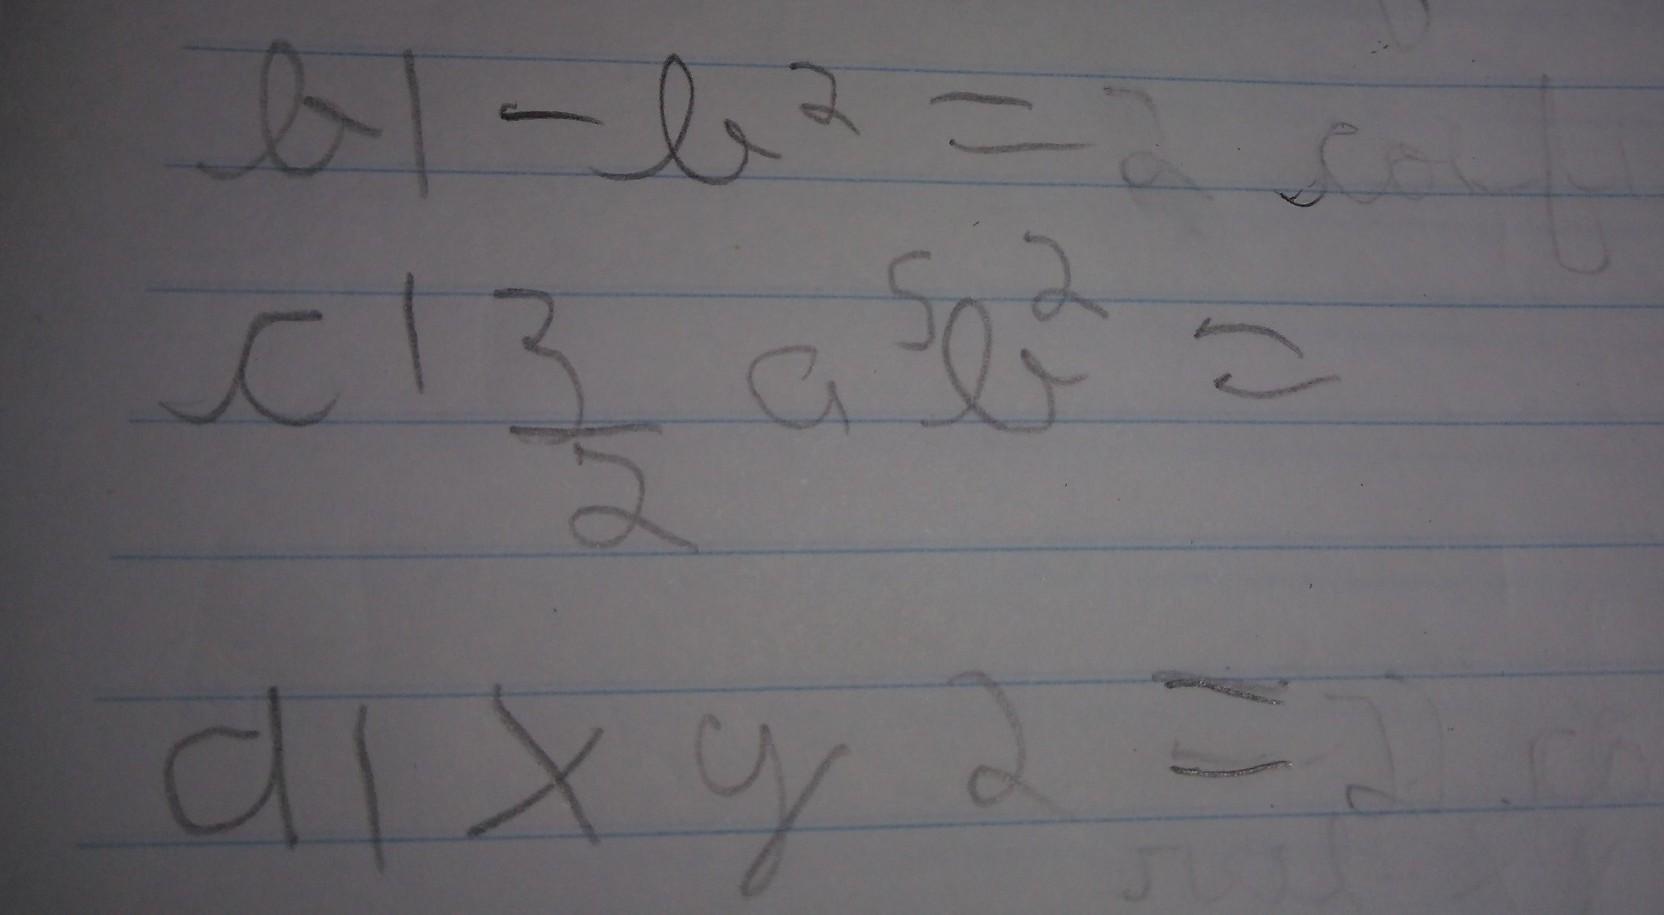 b| - b² =
c| 3/2 a⁵b² =
d| x y 2 =